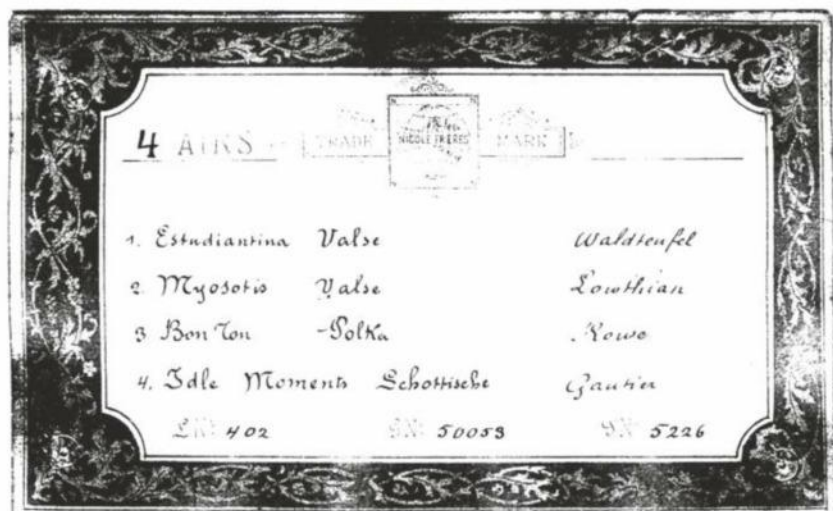 4 AIRS TRADE NICOLE FRÈRES MARK
1. Estudiantina Valse Waldteufel
2. Myosotis Valse Lowthian
3 Bon Ton -Polka Rowe
4. Idle Moments Schottische Gautier
402 50053 5226